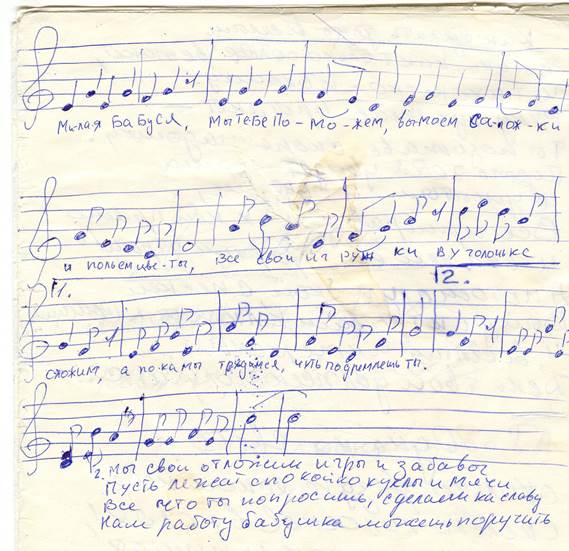 Милая бабуся, мы тебе по-мо-жем, вымоем сапож-ки
и польем цве-ты, все свои иг руж ки в уголочке
1. 2.
сложим, а пока мы трудимся, чуть подремлешь ты.
2. Мы свои отложим игры и забавы
Пусть лежат спокойно куклы и мячи
Все что ты попросишь, сделаем на славу
Нам работу бабушка можешь поручить